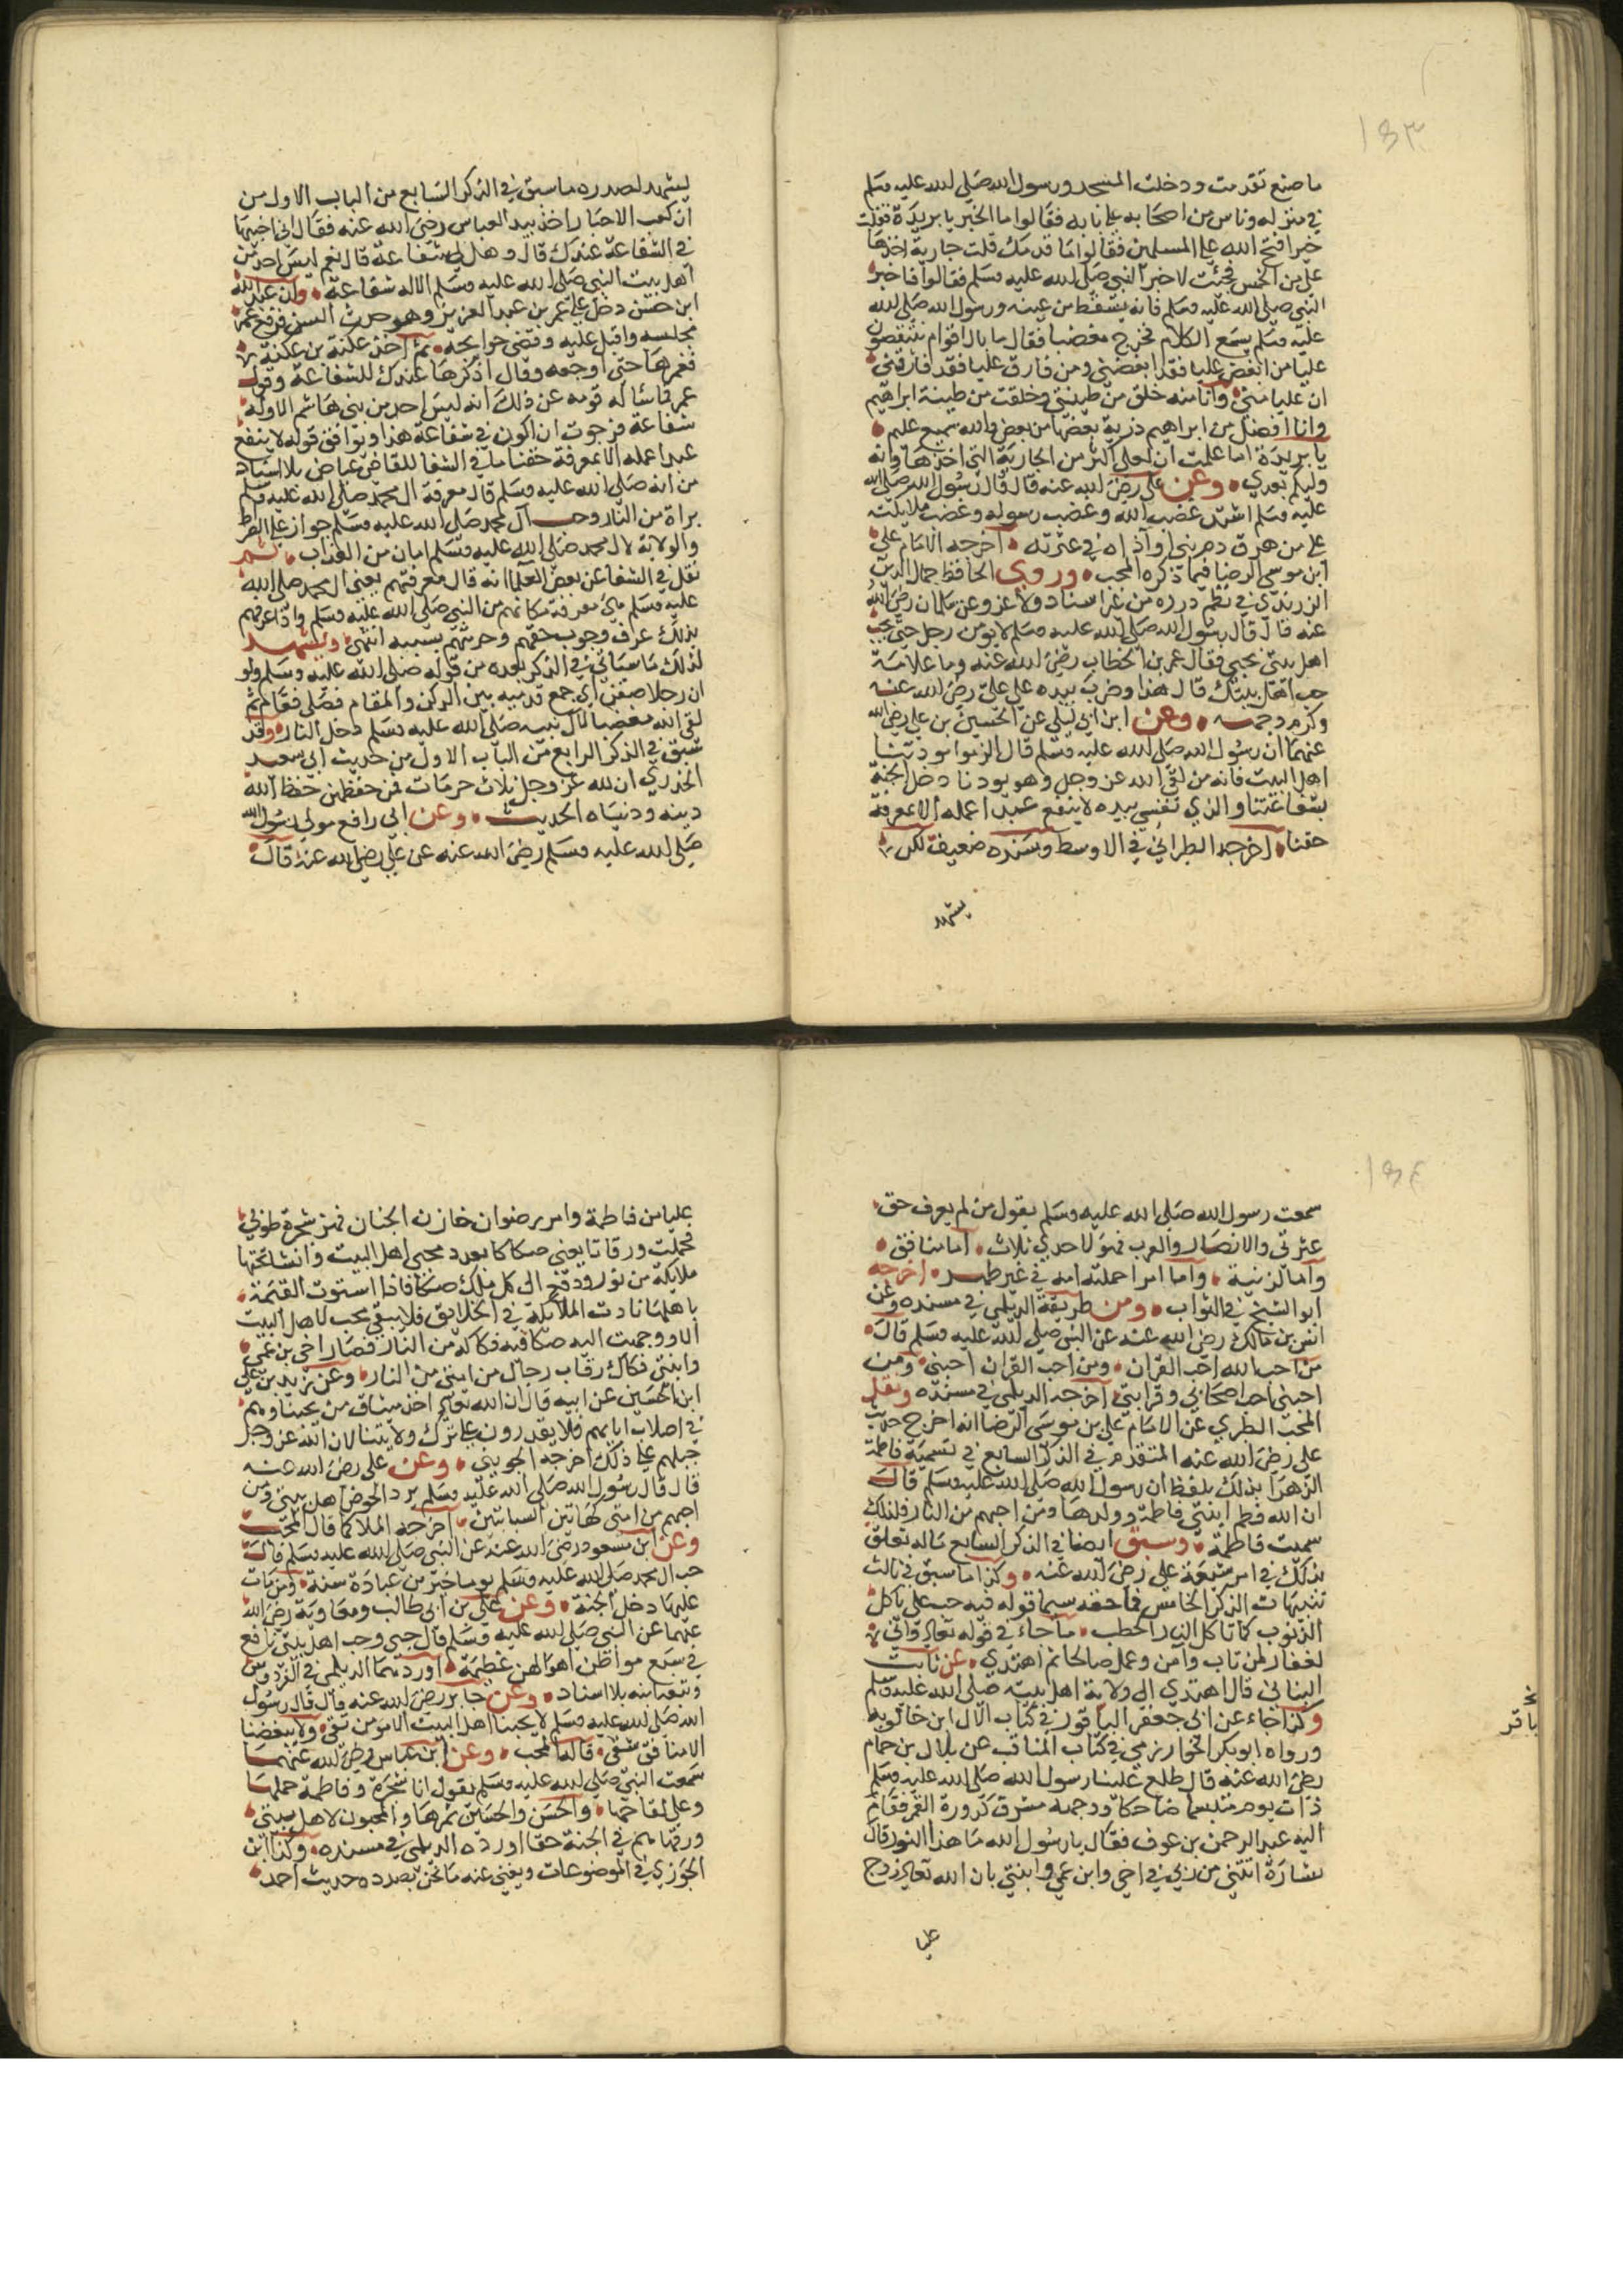 ١٥٣
ما صنع تقدمت ودخلت المسجد ورسول الله صلى الله عليه وسلم
في منزله وناس من اصحابه على بابه فقالوا ما الخبر يا بريدة فقلت
خيرا فتح الله على المسلمين فقالوا ما قدمك قلت جارية اخذها
على من الخمس فجئت لاخبر النبي صلى الله عليه وسلم فقالوا فاخبر
النبي صلى الله عليه وسلم فانه يسقط من عينه ورسول الله صلى الله
عليه وسلم يسمع الكلام فخرج مغضبا فقال ما بال اقوام ينتقصون
عليا من ابغض عليا فقد ابغضني ومن فارق عليا فقد فارقني
ان عليا مني وانا منه خلق من طينتي وخلقت من طينة ابراهيم
وانا افضل من ابراهيم ذرية بعضها من بعض والله سميع عليم
يا بريدة اما علمت ان لعلي اكثر من الجارية التي اخذها وانه
وليكم بعدي وعن علي رضي الله عنه قال قال رسول الله صلى الله
عليه وسلم اشتد غضب الله وغضب رسوله وغضب ملايكته
على من هرق دم نبي او آذاه في عترته اخرجه الامام علي
ابن موسى الرضا فيما ذكره المحب وروى الحافظ جمال الدين
الزرندي في نظم درره من غير اسناد ولا عزو عن سلمان رضي الله
عنه قال قال رسول الله صلى الله عليه وسلم لا يومن رجل حتى يحب
اهل بيتي بحبي فقال عمر بن الخطاب رضي الله عنه وما علامة
حب اهل بيتك قال هذا وضرب بيده على علي رضي الله عنه
وكرم وجهه وعن ابن ابي ليلى عن الحسين بن علي رضي الله
عنهما ان رسول الله صلى الله عليه وسلم قال الزموا مودتنا
اهل البيت فانه من لقي الله عز وجل وهو يودنا دخل الجنة
بشفاعتنا والذي نفسي بيده لا ينفع عبدا عمله الا بمعرفة
حقنا اخرجه الطبراني في الاوسط وسنده ضعيف لكن
يشهد
ليشهد لصدره ما سبق في الذكر السابع من الباب الاول من
ان كعب الاحبار اخذ بيد العباس رضي الله عنه فقال اني اختبيها
في الشفاعة عندك قال وهل لي شفاعة قال نعم ليس احد من
اهل بيت النبي صلى الله عليه وسلم الا له شفاعة وان عبد الله
ابن حسن دخل على عمر بن عبد العزيز وهو حدث السن فرفع عمر
مجلسه واقبل عليه وقضى حوايجه ثم اخذ عكنة من عكنه
فغمرها حتى اوجعه وقال اذكرها عندك للشفاعة وقول
عمر لما سأله قومه عن ذلك انه ليس احد من بني هاشم الا وله
شفاعة فرجوت ان اكون في شفاعة هذا ويوافق قوله لا ينفع
عبدا عمله الا بمعرفة حقنا ما في الشفا للقاضي عياض بلا اسناد
من انه صلى الله عليه وسلم قال معرفة ال محمد صلى الله عليه وسلم
براة من النار وحب آل محمد صلى الله عليه وسلم جواز على الصراط
والولاية لال محمد صلى الله عليه وسلم امان من العذاب ثم
نقل في الشفا عن بعض العلما انه قال معرفتهم يعني ال محمد صلى الله
عليه وسلم هي معرفة مكانهم من النبي صلى الله عليه وسلم واذا عرفهم
بذلك عرف وجوب حقهم وحرمتهم بسببه انتهى ويشهد
لذلك ما سيأتي في الذكر بعده من قوله صلى الله عليه وسلم ولو
ان رجلا صفن اي جمع قدميه بين الركن والمقام فصلى فقام ثم
لقي الله مبغضا لآل بيته صلى الله عليه وسلم دخل النار وقد
سبق في الذكر الرابع من الباب الاول من حديث ابي سعيد
الخدري ان لله عز وجل ثلاث حرمات فمن حفظهن حفظ الله
دينه ودنياه الحديث وعن ابي رافع مولى رسول الله
صلى الله عليه وسلم رضي الله عنه عن علي رضي الله عنه قال
١٥٤
سمعت رسول الله صلى الله عليه وسلم يقول من لم يعرف حق
عترتي والانصار والعرب فهو لاحدي ثلاث اما منافق
واما لزنية واما امرا حملته امه في غير طهر اخرجه
ابو الشيخ في الثواب ومن طريقه الديلمي في مسنده وعن
انس بن مالك رضي الله عنه عن النبي صلى الله عليه وسلم قال
من احب الله احب القران ومن احب القران احبني ومن
احبني احب اصحابي وقرابتي اخرجه الديلمي في مسنده ونقل
المحب الطبري عن الامام علي بن موسى الرضا انه اخرج حديث
علي رضي الله عنه المتقدم في الذكر السابع في تسمية فاطمة
الزهرا بذلك بلفظ ان رسول الله صلى الله عليه وسلم قال
ان الله فطم ابنتي فاطمة وولدها ومن احبهم من النار فلذلك
سميت فاطمة وسبق ايضا في الذكر السابع ماله تعلق
بذلك في امر شيعة علي رضي الله عنه وكذا ما سبق في ثالث
تنبيهات الذكر الخامس في حقه سيما قوله فيه حب علي ياكل
الذنوب كما تاكل النار الحطب ما جاء في قوله تعالى واني
لغفار لمن تاب وآمن وعمل صالحا ثم اهتدى عن ثابت
البناني قال اهتدى الى ولاية اهل بيته صلى الله عليه وسلم
وكذا جاء عن ابي جعفر الباقور في كتاب الآل ابن خالويه
ورواه ابو بكر الخوارزمي في كتاب المناقب عن بلال بن حمام
رضي الله عنه قال طلع علينا رسول الله صلى الله عليه وسلم
ذات يوم متبسما ضاحكا ووجهه مشرق كدورة القمر فقام
اليه عبد الرحمن بن عوف فقال يا رسول الله ما هذا النور قال
بشارة اتتني من ربي في اخي وابن عمي وابنتي بان الله تعالى زوج
باقر
عليا
عليا من فاطمة وامر رضوان خازن الجنان فهز شجرة طوبى
فحملت ورقاتا يعني صكاكا بعدد محبي اهل البيت وانشا تحتها
ملايكة من نور ودفع الى كل ملك صكا فاذا استوت القيمة
باهلها نادت الملايكة في الخلايق فلا يبقى محب لاهل البيت
الا ووجهت اليه صكا فيه فكاكه من النار فصار اخي بن عمي
وابنتي فكاك رقاب رجال من امتي من النار وعن زيد بن علي
ابن الحسين عن ابيه قال ان الله تعالى اخذ ميثاق من يحبنا وهم
في اصلاب ابايهم فلا يقدرون على ترك ولايتنا لان الله عز وجل
جبلهم على ذلك اخرجه الجويني وعن علي رضي الله عنه
قال قال رسول الله صلى الله عليه وسلم يرد الحوض اهل بيتي ومن
احبهم من امتي كهاتين السبابتين اخرجه الملا كما قال المحب
وعن ابن مسعود رضي الله عنه عن النبي صلى الله عليه وسلم قال
حب ال محمد صلى الله عليه وسلم يوما خير من عبادة سنة ومن مات
عليها دخل الجنة وعن علي بن ابي طالب ومعاوية رضي الله
عنهما عن النبي صلى الله عليه وسلم قال حبي وحب اهل بيتي نافع
في سبع مواطن اهوالهن عظيمة اوردهما الديلمي في الفردوس
وتبعه ابنه بلا اسناد وعن جابر رضي الله عنه قال قال رسول
الله صلى الله عليه وسلم لا يحبنا اهل البيت الا مومن تقي ولا يبغضنا
الا منافق شقي قاله المحب وعن ابن عباس رضي الله عنهما
سمعت النبي صلى الله عليه وسلم يقول انا شجرة وفاطمة حملها
وعلي لقاحها والحسن والحسين ثمرها والمحبون لاهل بيتي
ورقها هم في الجنة حقا اورده الديلمي في مسنده وكذا ابن
الجوزي في الموضوعات ويغني عنه ما نحن بصدده حديث احمد